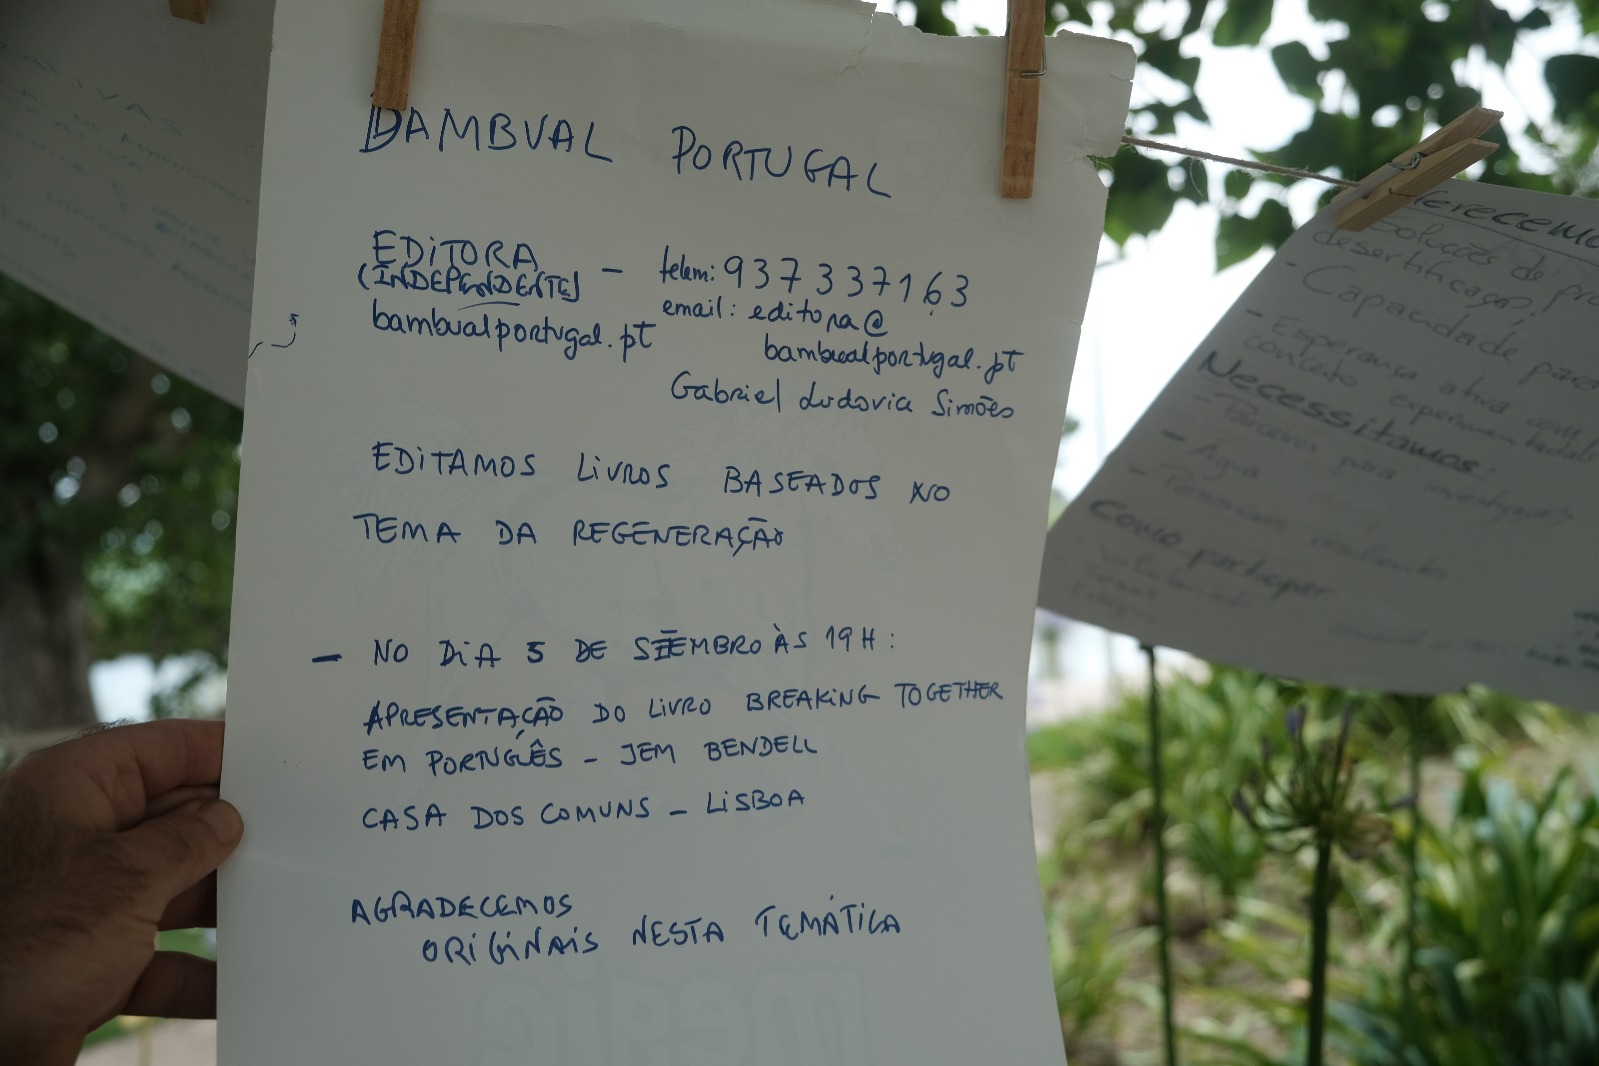 BAMBUAL PORTUGAL
EDITORA
(INDEPENDENTE)
bambualportugal.pt
– telem: 937337163
email: editora@
bambualportugal.pt
Gabriel Ludovia Simões
EDITAMOS LIVROS BASEADOS NO
TEMA DA REGENERAÇÃO
– NO DIA 5 DE SETEMBRO ÀS 19H:
APRESENTAÇÃO DO LIVRO BREAKING TOGETHER
EM PORTUGUÊS – JEM BENDELL
CASA DOS COMUNS – LISBOA
AGRADECEMOS
ORIGINAIS NESTA TEMÁTICA
magic
Soluções de
desertificação;
- Capacidade para
- Esperança ativa com
conceito experimentado
Necessitamos:
- Parceiros para investigação;
- Água
Como participar